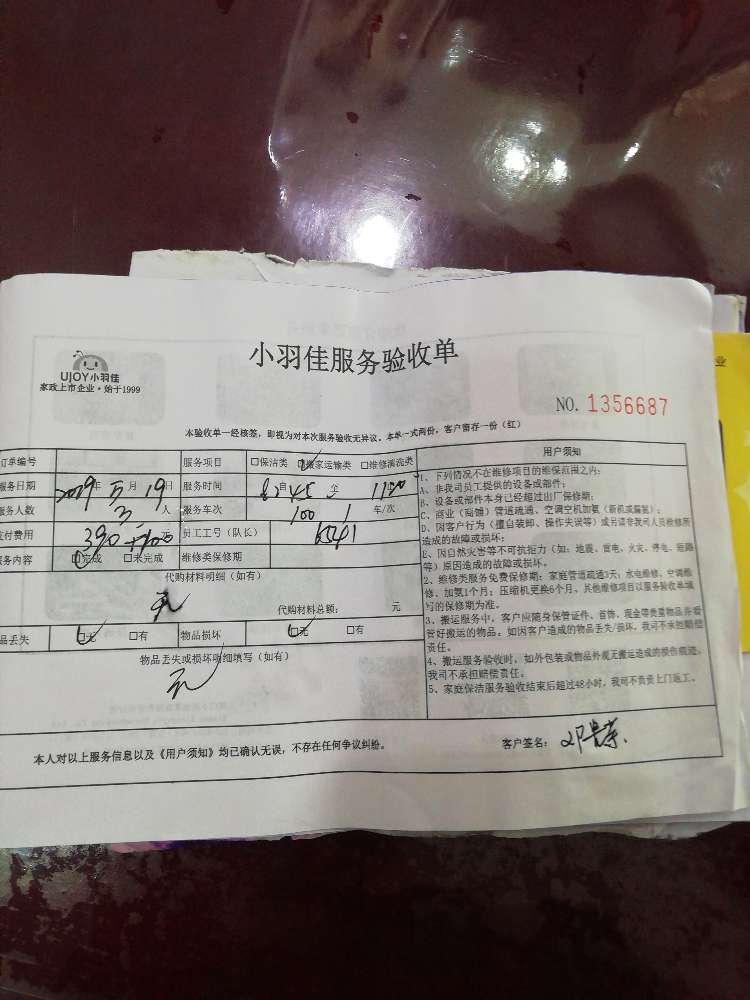 UJOY小羽佳
家政上市企业·始于1999
小羽佳服务验收单
NO. 1356687
本验收单一经核签，即视为对本次服务验收无异议。本单一式两份，客户留存一份（红）
订单编号 服务项目 □保洁类 □搬家运输类 □维修清洗类 用户须知
服务日期 年 5月19日 服务时间 自 8:45 至
服务人数 3 人 服务车次 1 车/次
支付费用 390 元 员工工号（队长）
服务内容 □完成 □未完成 维修类保修期
代购材料明细（如有）
无
代购材料总额： 元
物品丢失 □无 □有 物品损坏 □无 □有
物品丢失或损坏明细填写（如有）
无
1、下列情况不在维修项目的维保范围之内：
A、非我司员工提供的设备或部件；
B、设备或部件本身已经超过出厂保修期；
C、商业（商铺）管道疏通、空调空机加氟（新机或漏氟）；
D、因客户行为（擅自装卸、操作失误等）或另请非我司人员检修所
造成的故障或损坏；
E、因自然灾害等不可抗拒力（如：地震、雷电、火灾、停电、短路
等）原因造成的故障或损坏。
2、维修类服务免费保修期：家庭管道疏通3天，水电维修、空调维
修、加氟1个月；压缩机更换6个月，其他维修项目以服务验收单填
写的保修期为准。
3、搬运服务中，客户应随身保管证件、首饰、现金等贵重物品并看
管好搬运的物品。如因客户造成的物品丢失/损坏，我司不承担赔偿
责任。
4、搬运服务验收时，如外包装或物品外观无搬运造成的损伤痕迹，
我司不承担赔偿责任。
5、家庭保洁服务验收结束后超过48小时，我司不负责上门返工。
本人对以上服务信息以及《用户须知》均已确认无误，不存在任何争议纠纷。 客户签名：